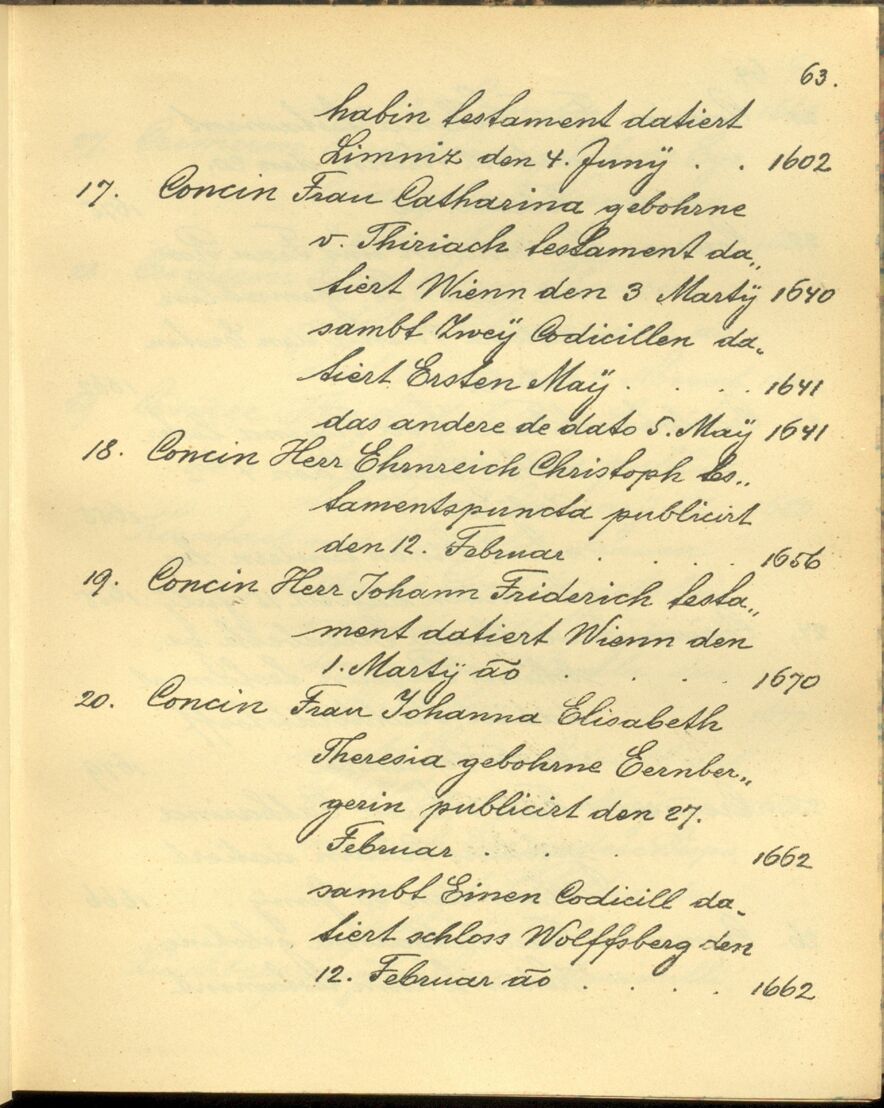 63.
habin testament datiert
Limniz den 4. Junÿ . . 1602
17. Concin Frau Catharina gebohrne
v. Thiriach testament da„
tiert Wienn den 3 Martÿ 1640
sambt Zweÿ Codicillen da„
tiert Ersten Maÿ . . . . 1641
das andere de dato 5. Maÿ 1641
18. Concin Herr Ehrnreich Christoph tes„
tamentspuncta publicirt
den 12. Februar . . . . 1656
19. Concin Herr Johann Friderich testa„
ment datiert Wienn den
1. Martÿ āo . . . . 1670
20. Concin Frau Johanna Elisabeth
Theresia gebohrne Eernber„
gerin publicirt den 27.
Februar . . . 1662
sambt Einen Codicill da„
tiert schloss Wolffsberg den
12. Februar āo . . . . 1662